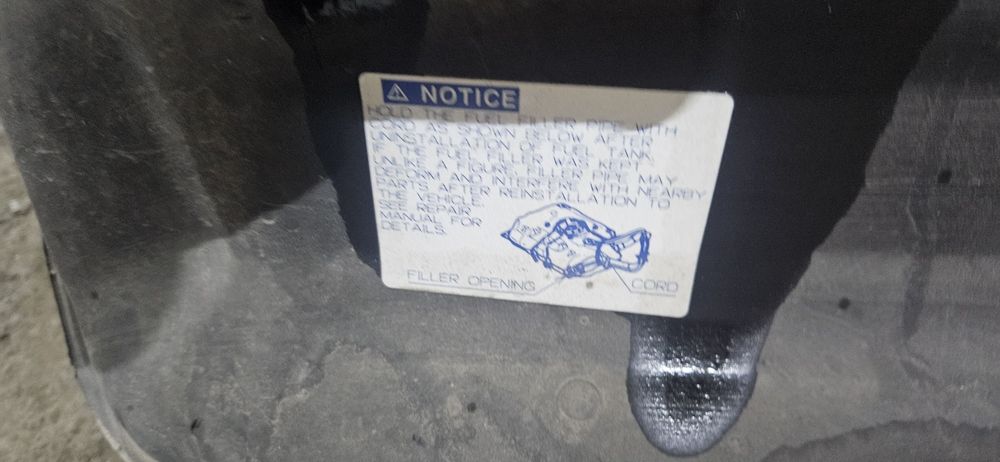 NOTICE
HOLD THE FUEL FILLER PIPE WITH
CORD AS SHOWN BELOW AFTER
UNINSTALLATION OF FUEL TANK.
IF THE FUEL FILLER WAS KEPT
UNLIKE A FIGURE, FILLER PIPE MAY
DEFORM AND INTERFERE WITH NEARBY
PARTS AFTER REINSTALLATION TO
THE VEHICLE.
SEE REPAIR
MANUAL FOR
DETAILS.
FILLER OPENING
CORD